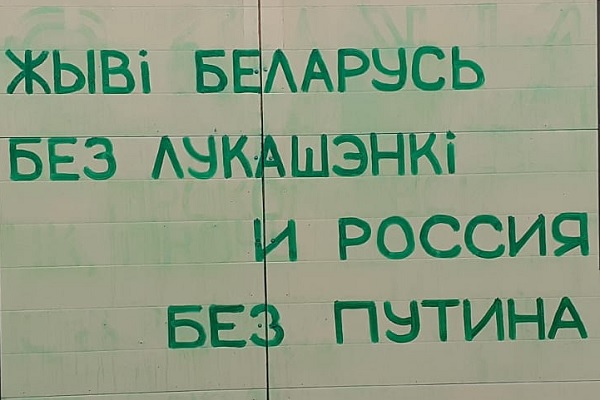 ЖЫВі БЕЛАРУСЬ
БЕЗ ЛУКАШЭНКі
И РОССИЯ
БЕЗ ПУТИНА